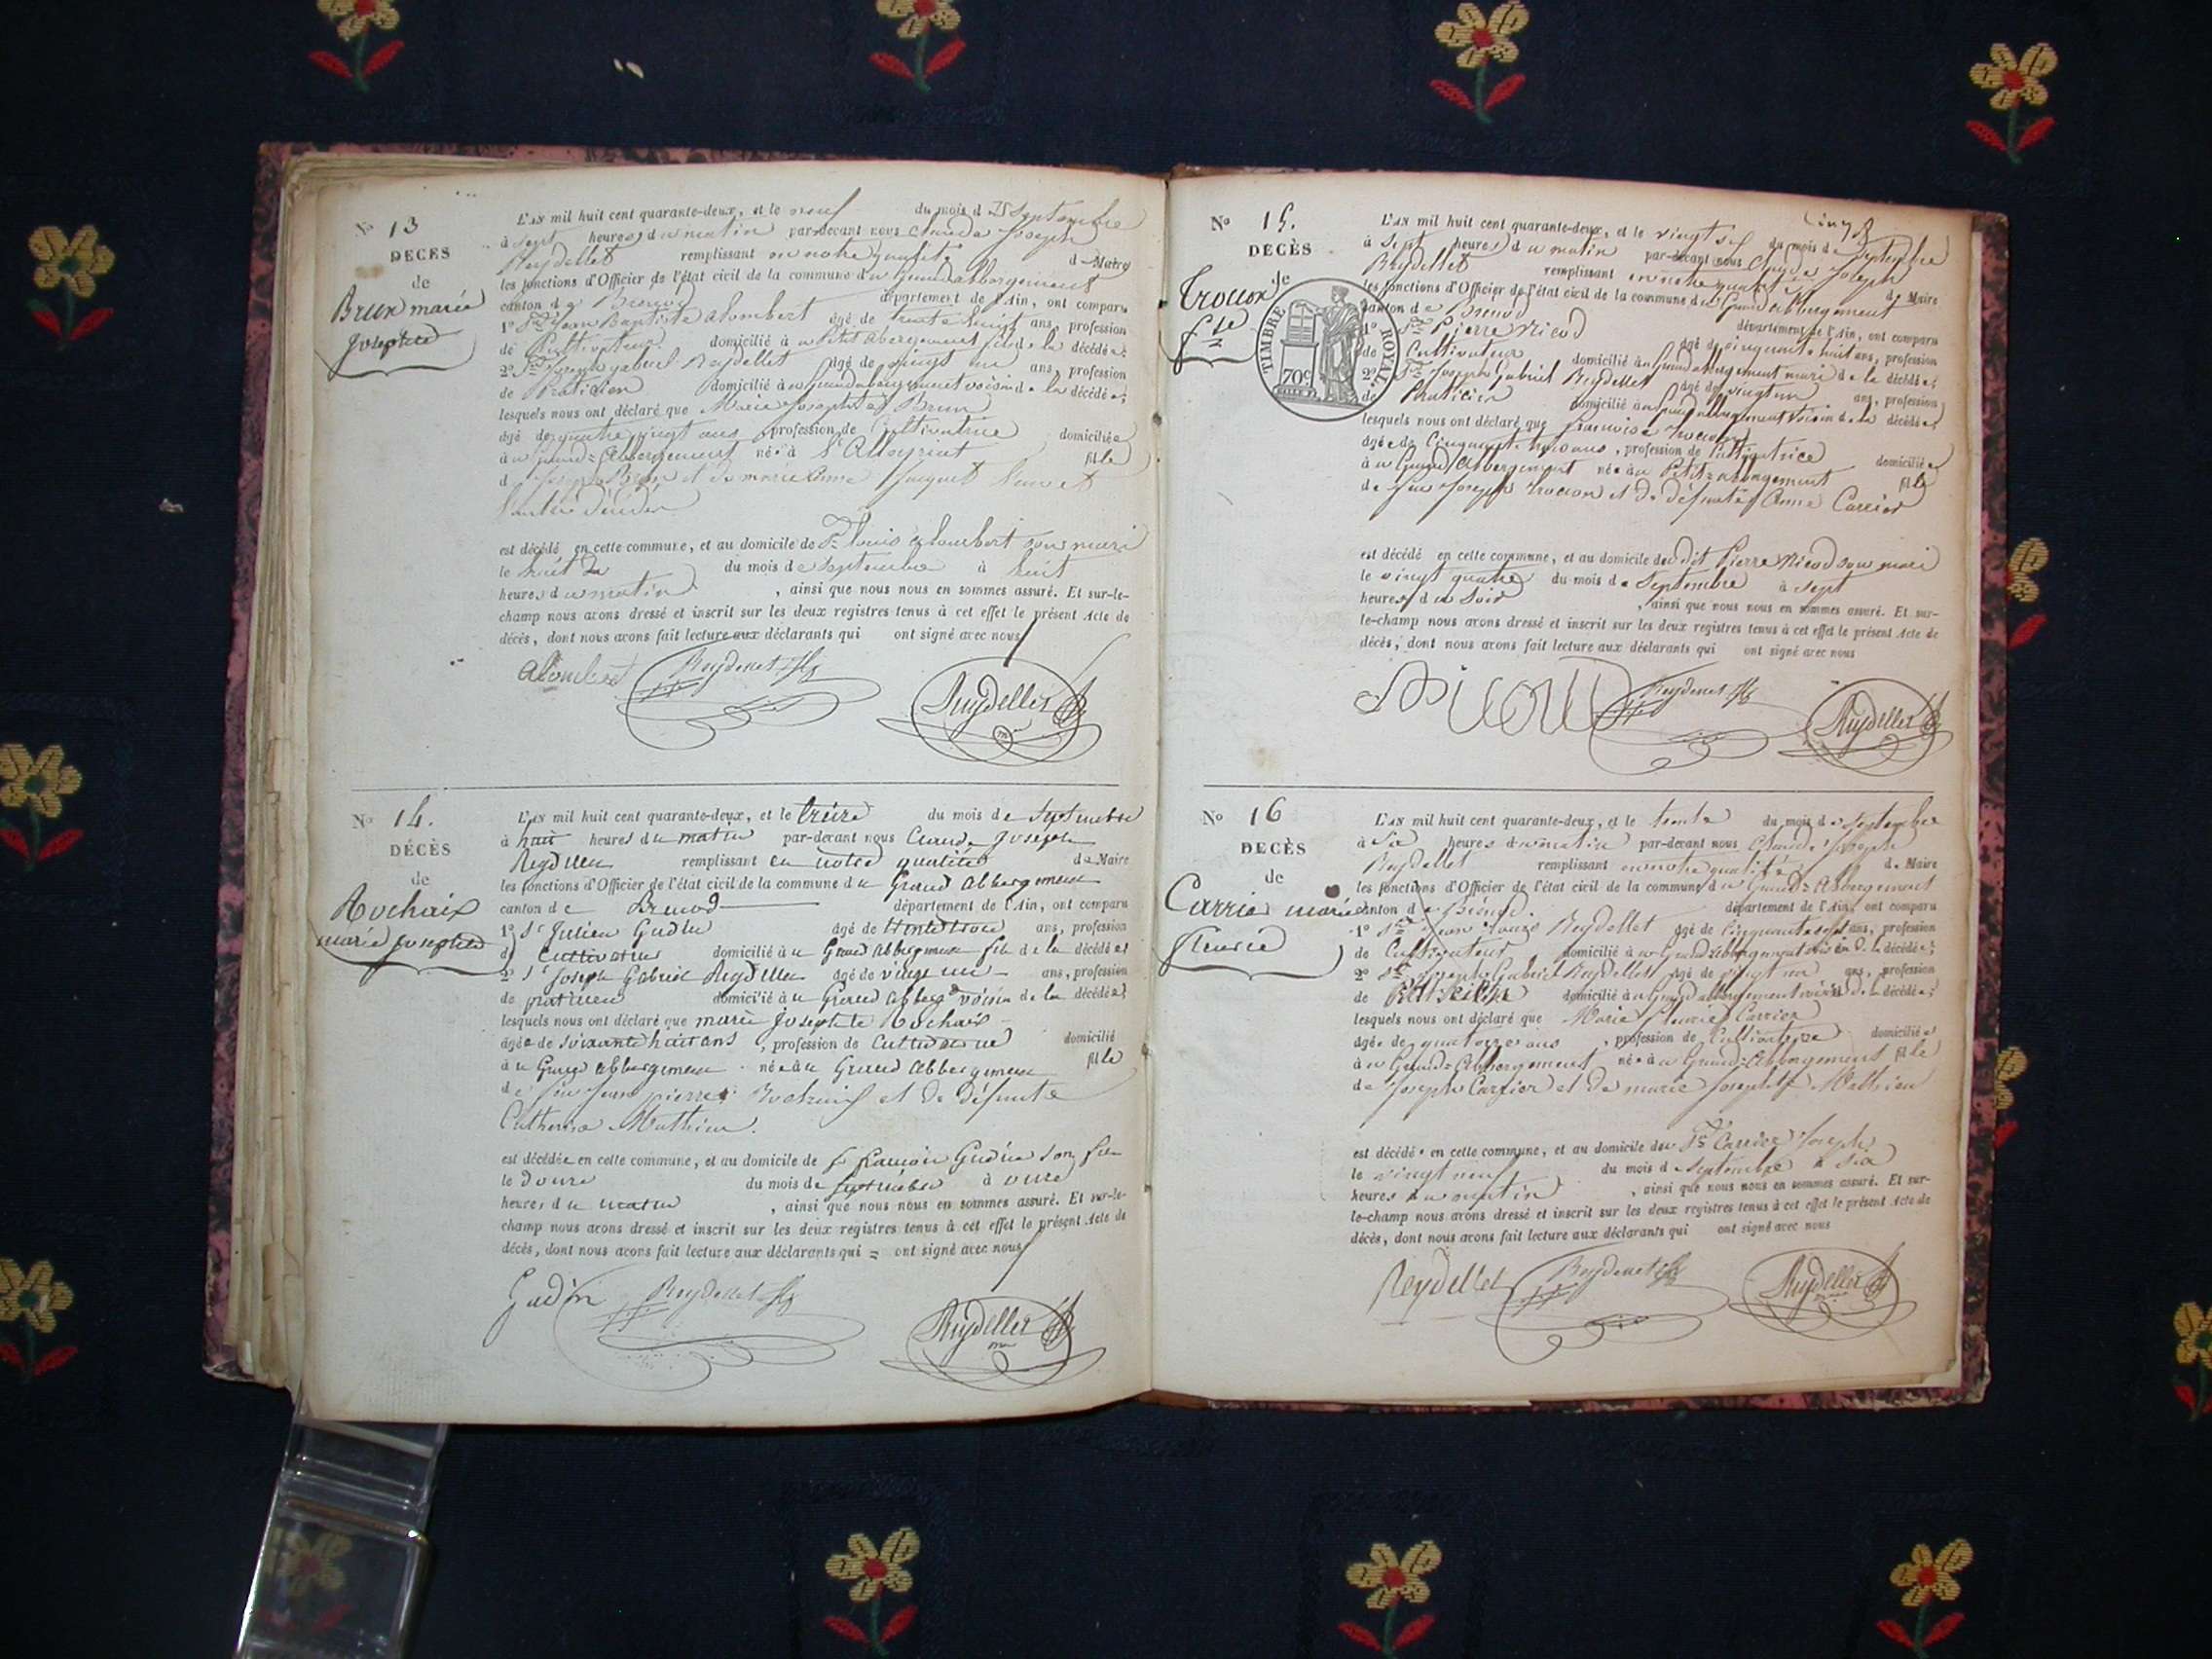 No 13
DECÈS
de
Brun marie
Josephte
L'AN mil huit cent quarante-deux, et le neuf du mois de Septembre
à sept heures du matin par-devant nous Claude Joseph
Reydellet remplissant en notre qualité de Maire
les fonctions d'Officier de l'état civil de la commune du Grand abbergement
canton de Brénod département de l'Ain, ont comparu
1° Sr Jean Baptiste alombert âgé de trente huit ans, profession
de Cultivateur domicilié à u Petit abergement fils de la décédée;
2° Sr Joseph gabriel Reydellet âgé de vingt un ans, profession
de Praticien domicilié à u Grand abbergement voisin de la décédée;
lesquels nous ont déclaré que Marie Josephte Brun
âgé de quatre vingt ans profession de Cultivatrice domiciliée
à u Grand-Abbergement née à fille
d Joseph Brun et de marie Anne l'un et
l'autre décédés
est décédé en cette commune, et au domicile de Sr Louis alombert son mari
le huit du mois de Septembre à huit
heures du matin , ainsi que nous nous en sommes assuré. Et sur-le-
champ nous avons dressé et inscrit sur les deux registres tenus à cet effet le présent Acte de
décès, dont nous avons fait lecture aux déclarants qui ont signé avec nous
alombert Reydellet Reydellet
No 14.
DÉCÈS
de
Rochaix
marie josephte
L'AN mil huit cent quarante-deux, et le treize du mois de Septembre
à huit heures du matin par-devant nous Claude Joseph
Reydellet remplissant en notre qualité de Maire
les fonctions d'Officier de l'état civil de la commune du Grand abbergement
canton de Brenod département de l'Ain, ont comparu
1° Sr Julien Gudin âgé de trente trois ans, profession
de Cultivateur domicilié à u Grand abbergement fils de la décédée;
2° Sr Joseph Gabriel Reydellet âgé de vingt un ans, profession
de praticien domicilié à u Grand abberg voisin de la décédée;
lesquels nous ont déclaré que marie josephte Rochaix
âgée de soixante huit ans , profession de Cultivatrice domicilié
à u Grand abbergement née à u Grand abbergement fille
de feu jean pierre Rochaix et de défunte
Catherine Mathieu.
est décédée en cette commune, et au domicile de Gudin son fils
le douze du mois de septembre à onze
heures du matin , ainsi que nous nous en sommes assuré. Et sur-le-
champ nous avons dressé et inscrit sur les deux registres tenus à cet effet le présent Acte de
décès, dont nous avons fait lecture aux déclarants qui = ont signé avec nous
Gudin Reydellet Reydellet
No 15.
DECÈS
de
Trocon
fse
TIMBRE ROYAL.
70c
L'AN mil huit cent quarante-deux, et le vingt six du mois de Septembre
à Sept heures du matin par-devant nous Claude Joseph
Reydellet remplissant en notre qualité de Maire
les fonctions d'Officier de l'état civil de la commune du Grand abbergement
canton de Brénod département de l'Ain, ont comparu
1° Sr Pierre Nicod âgé de cinquante huit ans, profession
de Cultivateur domicilié à u Grand abbergement mari de la décédée;
2° Sr Joseph Gabriel Reydellet âgé de vingt un ans, profession
de Praticien domicilié à u Grand abbergement voisin de la décédée;
lesquels nous ont déclaré que francoise Trocon
âgée de Cinquante ans , profession de Cultivatrice domiciliée
à u Grand Abbergement née à u Petit-abbergement fille
de feu Joseph Trocon et de défunte Anne Carrier
est décédé en cette commune, et au domicile du dit Pierre Nicod son mari
le vingt quatre du mois de Septembre à sept
heures du Soir , ainsi que nous nous en sommes assuré. Et sur-
le-champ nous avons dressé et inscrit sur les deux registres tenus à cet effet le présent Acte de
décès, dont nous avons fait lecture aux déclarants qui ont signé avec nous
Nicod Reydellet Reydellet
No 16
DECÈS
de
Carrier marie
fleurie
L'AN mil huit cent quarante-deux, et le trente du mois de Septembre
à Six heures du matin par-devant nous Claude Joseph
Reydellet remplissant en notre qualité de Maire
les fonctions d'Officier de l'état civil de la commune du Grand-Abbergement
canton de Brénod. département de l'Ain, ont comparu
1° Sr Jean Reydellet âgé de Cinquante sept ans, profession
de Cultivateur domicilié à u Grand abbergement voisin de la décédée;
2° Sr Joseph Gabriel Reydellet âgé de vingt un ans, profession
de Praticien domicilié à u Grand abbergement voisin de la décédée;
lesquels nous ont déclaré que Marie fleurie Carrier
âgée de quatorze ans , profession de Cultivatrice domiciliée
à u Grand-Abbergement née à u Grand-Abbergement fille
de Joseph Carrier et de marie josephte Mathieu
est décédée en cette commune, et au domicile du Sr Carrier Joseph
le vingt neuf du mois de Septembre à six
heures du matin , ainsi que nous nous en sommes assuré. Et sur-
le-champ nous avons dressé et inscrit sur les deux registres tenus à cet effet le présent Acte de
décès, dont nous avons fait lecture aux déclarants qui ont signé avec nous
Reydellet Reydellet Reydellet